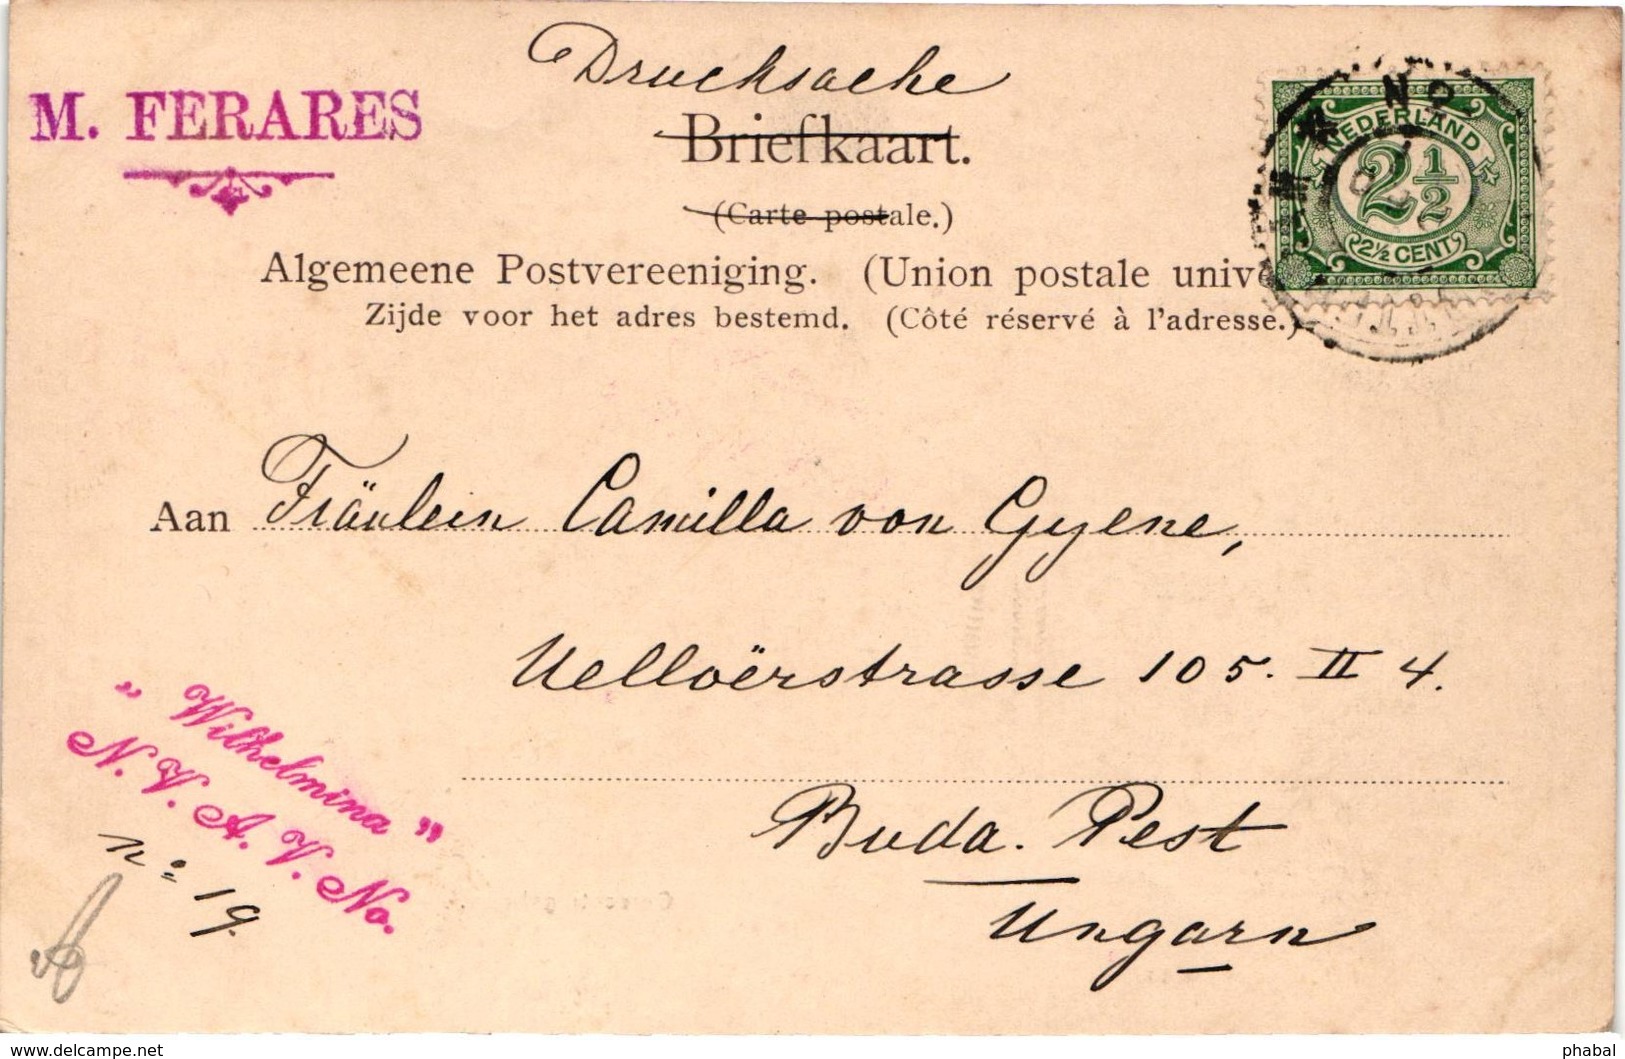 Drucksache
M. FERARES
Briefkaart.
(Carte postale.)
Algemeene Postvereeniging. (Union postale unive
Zijde voor het adres bestemd. (Côté réservé à l'adresse.)
NEDERLAND
2 1/2
2½ CENT
Aan Fräulein Camilla von Gyene,
Uelloërstrasse 105. II 4.
"Wilhelmina"
N. V. A. V. No.
No 19.
Buda. Pest
Ungarn
www.delcampe.net
phabal